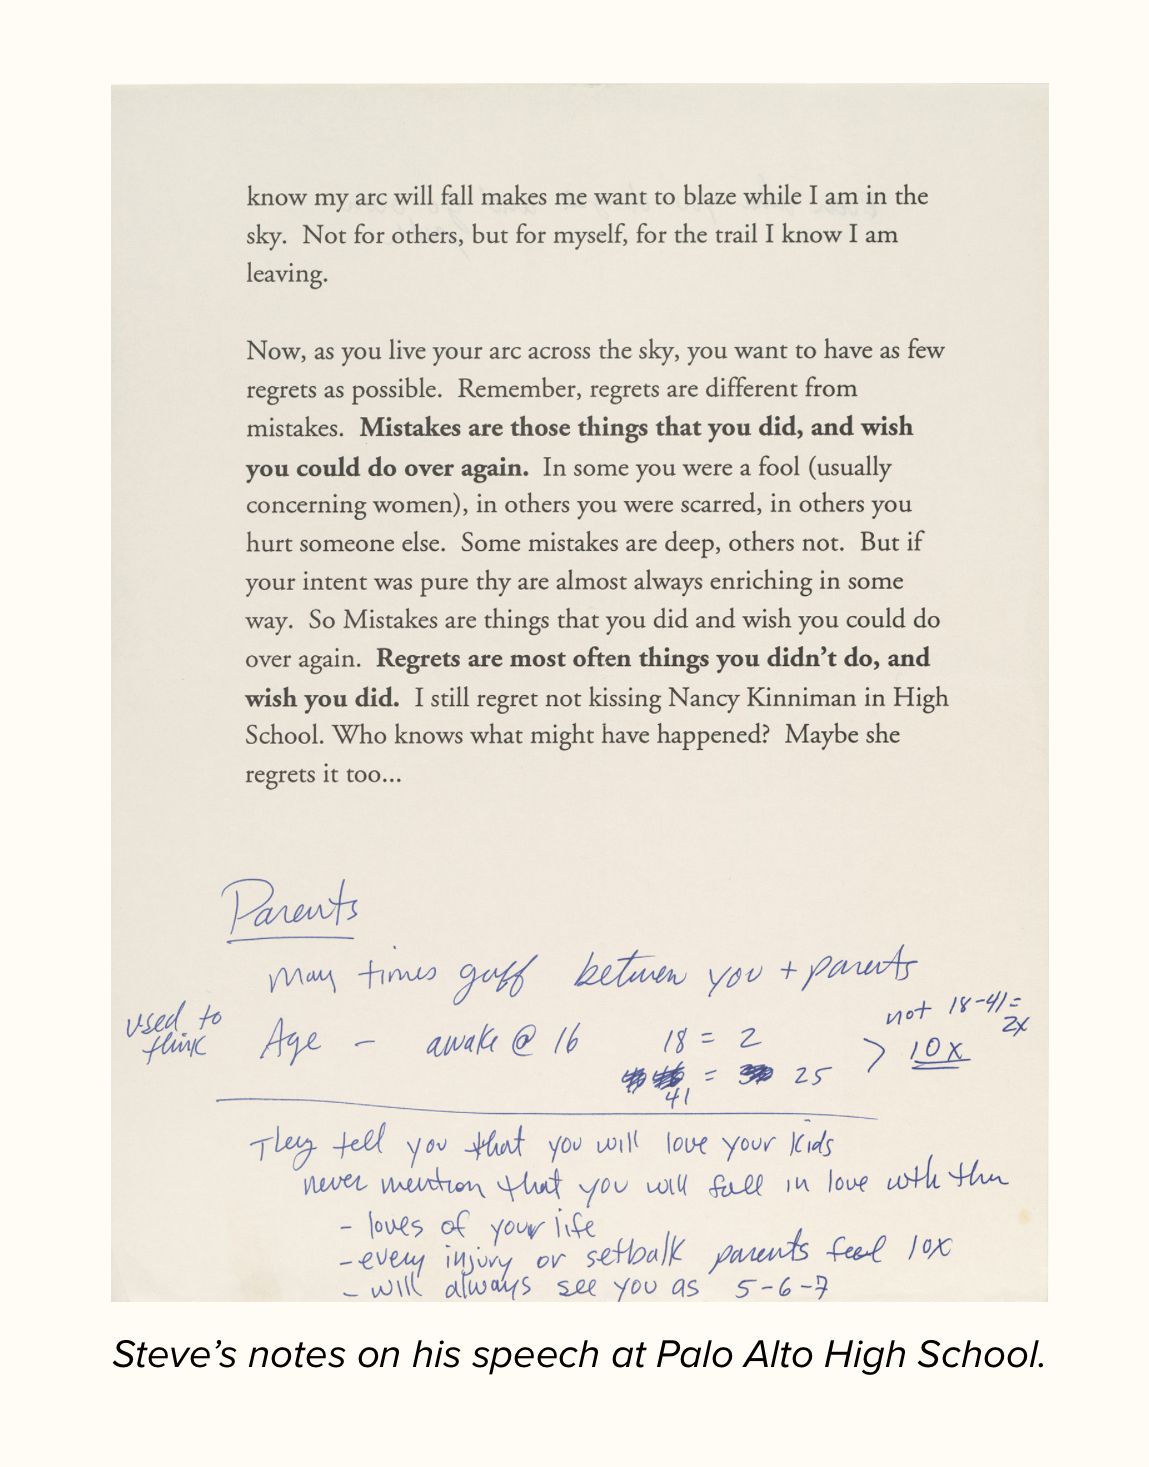 know my arc will fall makes me want to blaze while I am in the
sky.  Not for others, but for myself, for the trail I know I am
leaving.
Now, as you live your arc across the sky, you want to have as few
regrets as possible.  Remember, regrets are different from
mistakes.  Mistakes are those things that you did, and wish
you could do over again.  In some you were a fool (usually
concerning women), in others you were scarred, in others you
hurt someone else.  Some mistakes are deep, others not.  But if
your intent was pure thy are almost always enriching in some
way.  So Mistakes are things that you did and wish you could do
over again.  Regrets are most often things you didn't do, and
wish you did.  I still regret not kissing Nancy Kinniman in High
School. Who knows what might have happened?  Maybe she
regrets it too...
Parents
May times gulf between you + parents
used to
think
Age – awake @ 16 18 = 2
not 18-41=
2x
> 10x
= 25
41
They tell you that you will love your kids
never mention that you will fall in love with them
- loves of your life
- every injury or setback parents feel 10x
- will always see you as 5-6-7
Steve's notes on his speech at Palo Alto High School.